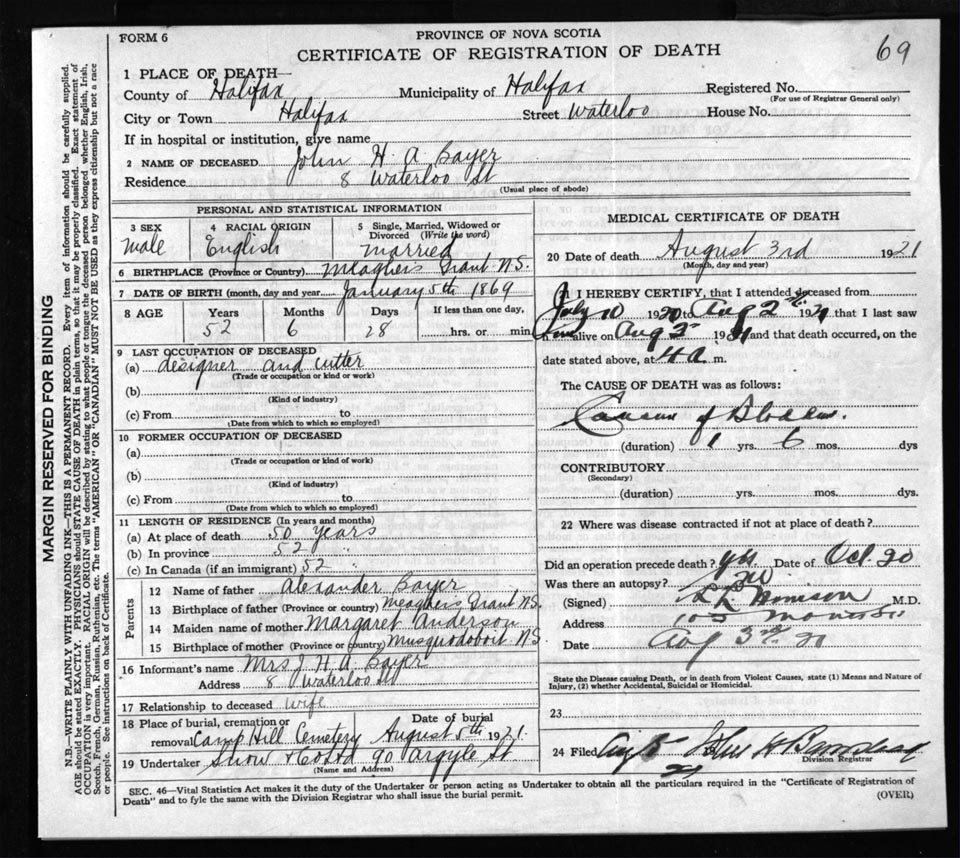 FORM 6
PROVINCE OF NOVA SCOTIA
CERTIFICATE OF REGISTRATION OF DEATH
69
1 PLACE OF DEATH—
County of Halifax Municipality of Halifax Registered No.
(For use of Registrar General only)
City or Town Halifax Street Waterloo House No.
If in hospital or institution, give name
2 NAME OF DECEASED John H A Bayer
Residence 8 Waterloo St
(Usual place of abode)
PERSONAL AND STATISTICAL INFORMATION
3 SEX Male
4 RACIAL ORIGIN English
5 Single, Married, Widowed or Divorced (Write the word) Married
6 BIRTHPLACE (Province or Country) Meaghers Grant N.S.
7 DATE OF BIRTH (month, day and year) January 5th 1869
8 AGE Years Months Days If less than one day,
52 6 28 hrs. or min.
9 LAST OCCUPATION OF DECEASED
(a) designer and cutter
(Trade or occupation or kind or work)
(b)
(Kind of industry)
(c) From to
(Date from which to which so employed)
10 FORMER OCCUPATION OF DECEASED
(a)
(Trade or occupation or kind of work)
(b)
(Kind of industry)
(c) From to
(Date from which to which so employed)
11 LENGTH OF RESIDENCE (In years and months)
(a) At place of death 50 years
(b) In province 52 "
(c) In Canada (if an immigrant) 52
Parents
12 Name of father Alexander Bayer
13 Birthplace of father (Province or country) Meaghers Grant N.S.
14 Maiden name of mother Margaret Anderson
15 Birthplace of mother (Province or country) Musquodoboit N.S.
16 Informant's name Mrs J. H. A. Bayer
Address 8 Waterloo St
17 Relationship to deceased wife
18 Place of burial, cremation or removal Camp Hill Cemetery Date of burial August 5th 1921.
19 Undertaker Snow & Co Ltd 90 Argyle St
(Name and Address)
MEDICAL CERTIFICATE OF DEATH
20 Date of death August 3rd 1921
(Month, day and year)
21 I HEREBY CERTIFY, that I attended deceased from
July 10 1920 to Aug 2 1921 that I last saw
him alive on Aug 2 1921 and that death occurred, on
date stated above, at 4 a m.
The CAUSE OF DEATH was as follows:
Cancer of Bladder.
(duration) 1 yrs. 6 mos. dys
CONTRIBUTORY
(Secondary)
(duration) yrs. mos. dys.
22 Where was disease contracted if not at place of death?
Did an operation precede death? yes Date of Oct. 20
Was there an autopsy? no
(Signed) M.D.
Address 105
Date Aug 3rd
State the Disease causing Death, or in death from Violent Causes, state (1) Means and Nature of
Injury, (2) whether Accidental, Suicidal or Homicidal.
23
24 Filed Aug 5
Division Registrar
SEC. 46—Vital Statistics Act makes it the duty of the Undertaker or person acting as Undertaker to obtain all the particulars required in the "Certificate of Registration of
Death" and to fyle the same with the Division Registrar who shall issue the burial permit.
(OVER)
MARGIN RESERVED FOR BINDING
N.B.—WRITE PLAINLY WITH UNFADING INK—THIS IS A PERMANENT RECORD. Every item of information should be carefully supplied.
AGE should be stated EXACTLY. PHYSICIANS should STATE CAUSE OF DEATH in plain terms, so that it may be properly classified. Exact statement of
OCCUPATION is very important. RACIAL ORIGIN will be described by stating to what people or tongue the deceased person belonged whether English, Irish,
Scotch, French, German, Russian, Ruthenian, etc. The terms "AMERICAN" OR "CANADIAN" MUST NOT BE USED as they express citizenship but not a race
or people. See instructions on back of Certificate.